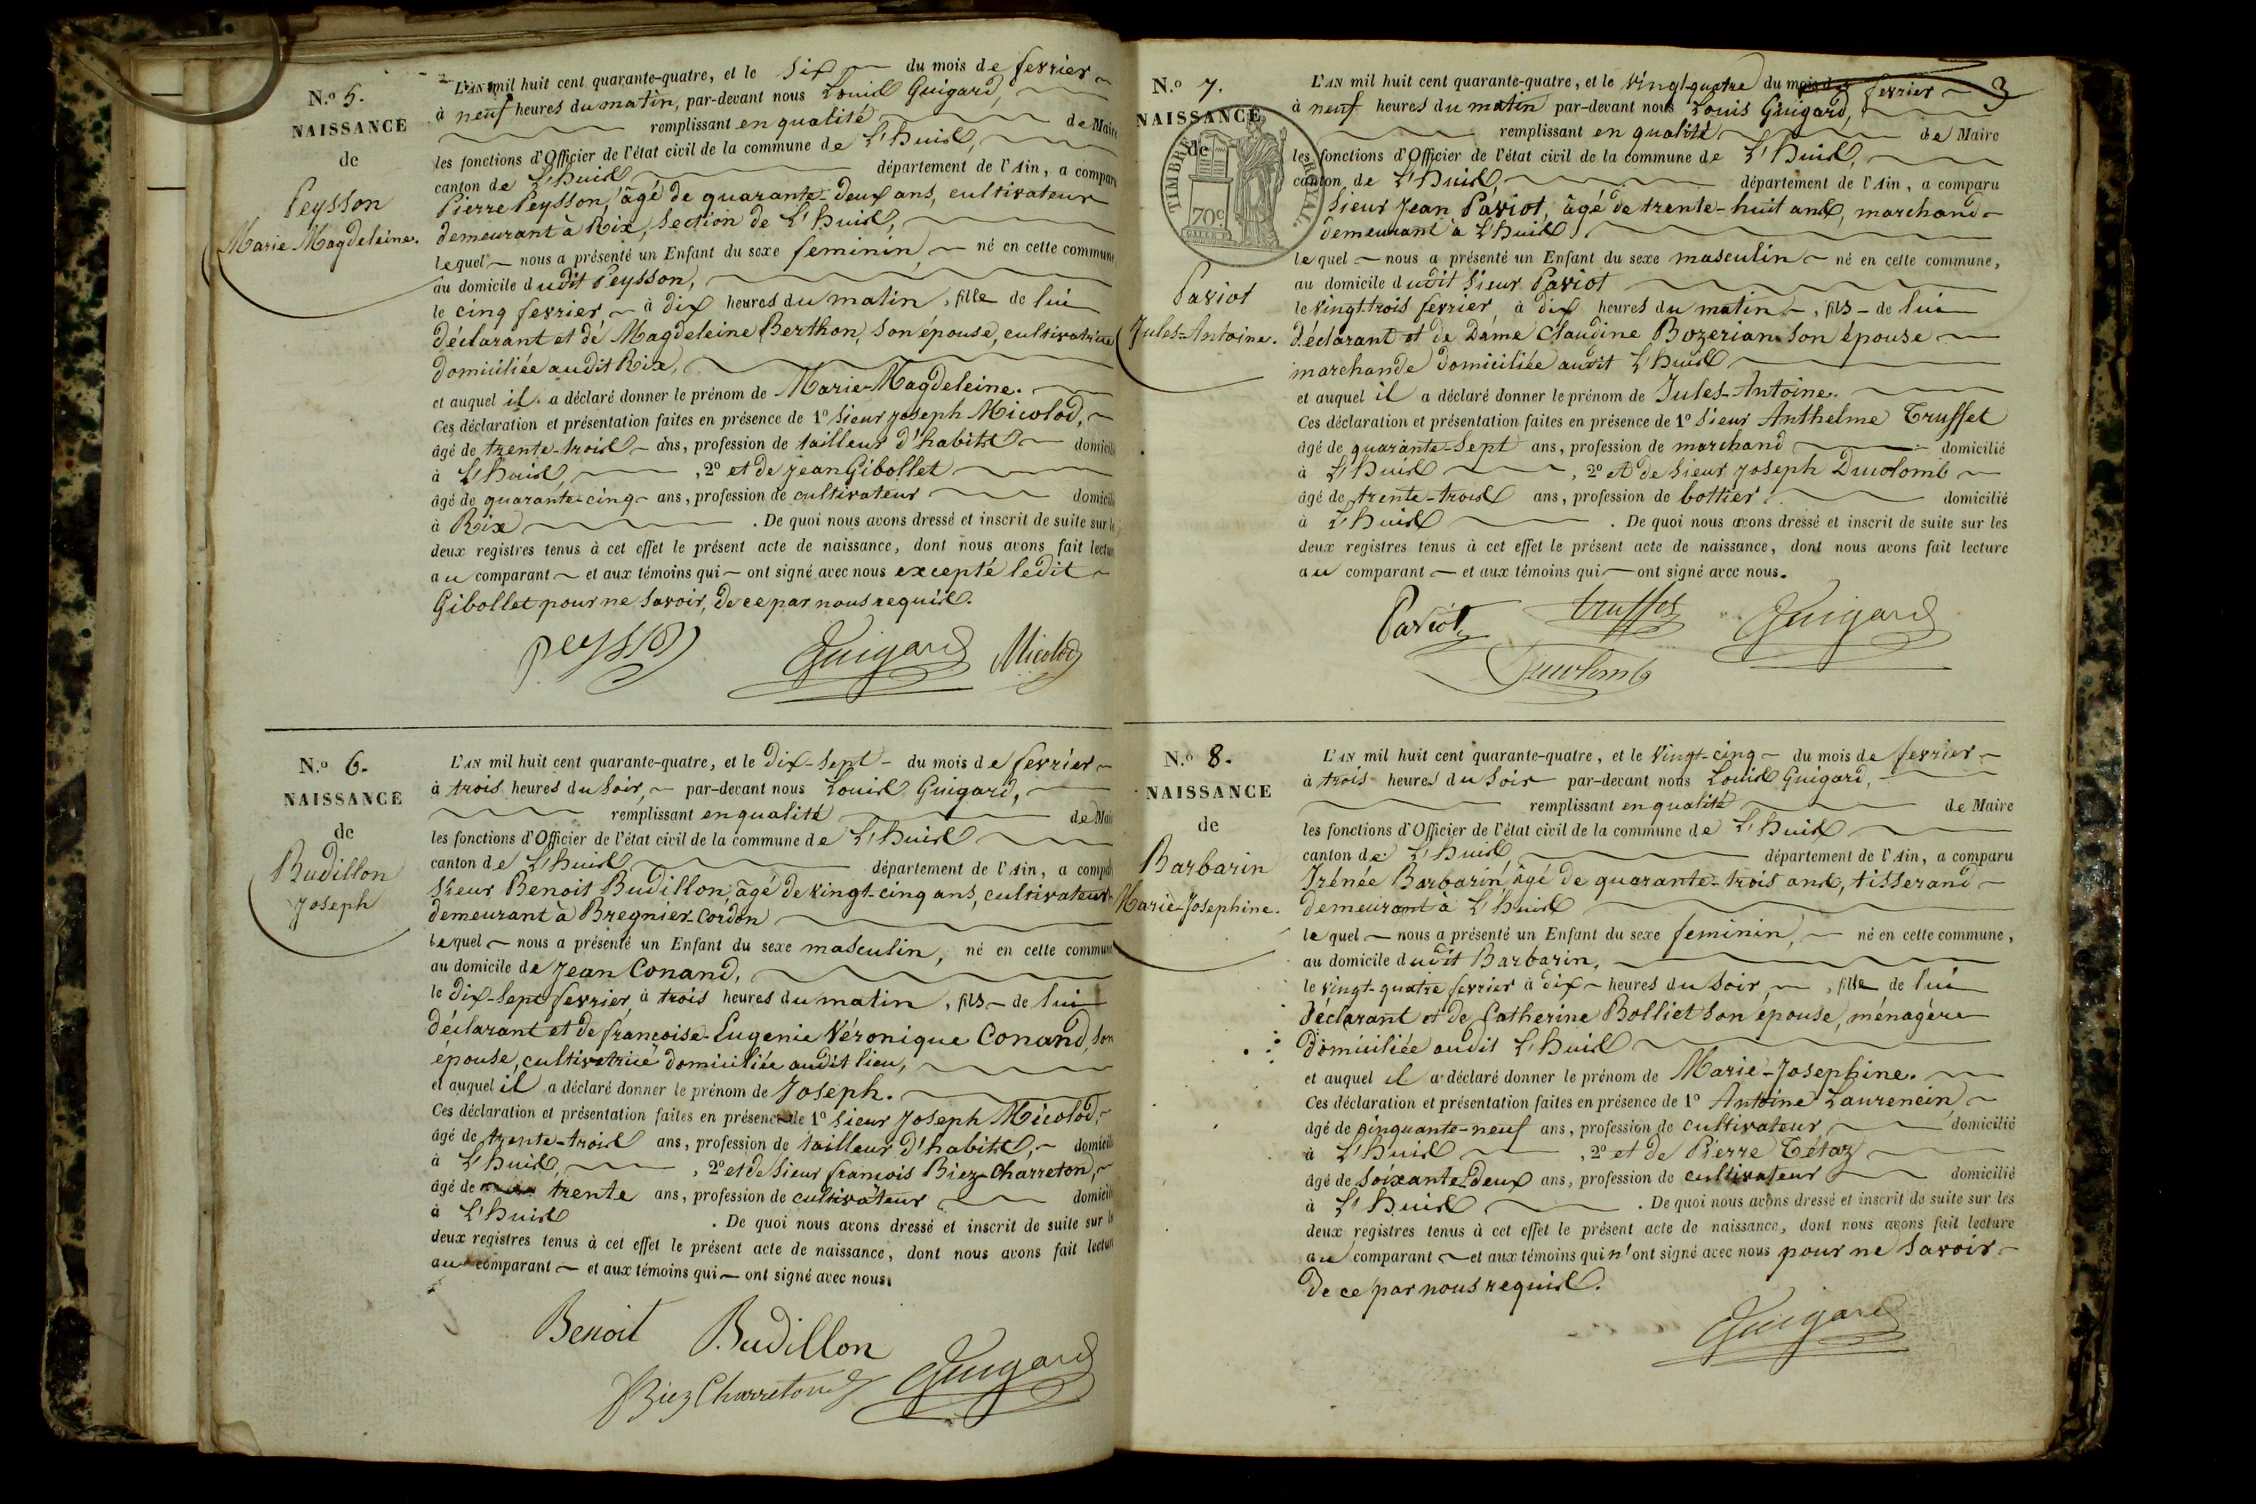 N.o 5.
NAISSANCE
de
Peysson
Marie-Magdeleine.
L'AN mil huit cent quarante-quatre, et le six du mois de fevrier
à neuf heures du matin, par-devant nous Louis Guigard,
remplissant en qualité de Maire
les fonctions d'Officier de l'état civil de la commune de L'huis,
canton de L'huis département de l'Ain, a comparu
Pierre Peysson, âgé de quarante-deux ans, cultivateur
demeurant à Rix, section de L'huis,
lequel nous a présenté un Enfant du sexe feminin, né en cette commune,
au domicile dudit Peysson,
le cinq fevrier à dix heures du matin, fille de lui
déclarant et de Magdeleine Berthon, son épouse, cultivatrice
domiciliée audit Rix,
et auquel il a déclaré donner le prénom de Marie-Magdeleine.
Ces déclaration et présentation faites en présence de 1o Sieur Joseph Micolod,
âgé de trente-trois ans, profession de tailleur d'habits domicilié
à L'huis, , 2o et de Jean Gibollet
âgé de quarante-cinq ans, profession de cultivateur domicilié
à Rix . De quoi nous avons dressé et inscrit de suite sur les
deux registres tenus à cet effet le présent acte de naissance, dont nous avons fait lecture
au comparant et aux témoins qui ont signé avec nous excepté ledit
Gibollet pour ne savoir, de ce par nous requis.
Peysson Guigard Micolod
N.o 6.
NAISSANCE
de
Budillon
Joseph
L'AN mil huit cent quarante-quatre, et le dix-sept du mois de fevrier
à trois heures du soir, par-devant nous Louis Guigard,
remplissant en qualité de Maire
les fonctions d'Officier de l'état civil de la commune de L'huis
canton de L'huis département de l'Ain, a comparu
Sieur Benoit Budillon, âgé de vingt-cinq ans, cultivateur
demeurant à Bregnier-Cordon
lequel nous a présenté un Enfant du sexe masculin, né en cette commune
au domicile de Jean Conand,
le dix-sept fevrier à trois heures du matin, fils de lui
déclarant et de françoise-Eugenie Véronique Conand, son
épouse, cultivatrice domiciliée audit lieu,
et auquel il a déclaré donner le prénom de Joseph.
Ces déclaration et présentation faites en présence de 1o Sieur Joseph Micolod,
âgé de trente-trois ans, profession de tailleur d'habits, domicilié
à L'huis, , 2o et de Sieur françois Biez-Charreton,
âgé de trente ans, profession de cultivateur domicilié
à L'huis . De quoi nous avons dressé et inscrit de suite sur les
deux registres tenus à cet effet le présent acte de naissance, dont nous avons fait lecture
au comparant et aux témoins qui ont signé avec nous.
Benoit Budillon
Biez Charreton Guigard
3
N.o 7.
NAISSANCE
de
TIMBRE ROYAL
70c
Paviot
Jules-Antoine.
L'AN mil huit cent quarante-quatre, et le vingt-quatre du mois de fevrier
à neuf heures du matin par-devant nous Louis Guigard,
remplissant en qualité de Maire
les fonctions d'Officier de l'état civil de la commune de L'huis,
canton de L'huis, département de l'Ain, a comparu
Sieur Jean Paviot, âgé de trente-huit ans, marchand
demeurant à L'huis,
lequel nous a présenté un Enfant du sexe masculin né en cette commune,
au domicile dudit Sieur Paviot
le vingt-trois fevrier, à dix heures du matin, fils de lui
déclarant et de Dame Claudine Bozerian son épouse
marchande domiciliée audit L'huis
et auquel il a déclaré donner le prénom de Jules-Antoine.
Ces déclaration et présentation faites en présence de 1o Sieur Anthelme Truffet
âgé de quarante-sept ans, profession de marchand domicilié
à L'huis , 2o et de Sieur Joseph Ducolomb
âgé de trente-trois ans, profession de bottier domicilié
à L'huis . De quoi nous avons dressé et inscrit de suite sur les
deux registres tenus à cet effet le présent acte de naissance, dont nous avons fait lecture
au comparant et aux témoins qui ont signé avec nous.
Paviot truffet Guigard
Ducolomb
N.o 8.
NAISSANCE
de
Barbarin
Marie-Josephine.
L'AN mil huit cent quarante-quatre, et le vingt-cinq du mois de fevrier
à trois heures du soir par-devant nous Louis Guigard,
remplissant en qualité de Maire
les fonctions d'Officier de l'état civil de la commune de L'huis
canton de L'huis département de l'Ain, a comparu
Irénée Barbarin, âgé de quarante-trois ans, tisserand
demeurant à L'huis
lequel nous a présenté un Enfant du sexe feminin, né en cette commune,
au domicile dudit Barbarin,
le vingt-quatre fevrier à dix heures du soir, fille de lui
déclarant et de Catherine Bolliet son épouse, ménagère
domiciliée audit L'huis
et auquel il a déclaré donner le prénom de Marie-Josephine.
Ces déclaration et présentation faites en présence de 1o Antoine Laurencin,
âgé de cinquante-neuf ans, profession de cultivateur domicilié
à L'huis , 2o et de Pierre Tétaz
âgé de soixante-deux ans, profession de cultivateur domicilié
à L'huis . De quoi nous avons dressé et inscrit de suite sur les
deux registres tenus à cet effet le présent acte de naissance, dont nous avons fait lecture
au comparant et aux témoins qui n'ont signé avec nous pour ne savoir
de ce par nous requis.
Guigard